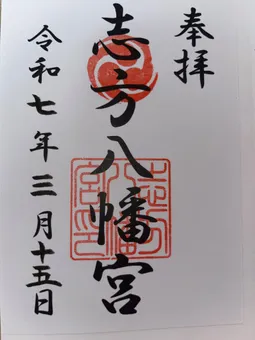 奉拝
志方八幡宮
令和七年三月十五日